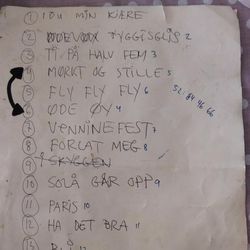 1 DU MIN KJÆRE
2 TYGGISGLIS 2
3 TI PÅ HALV FEM 3
4 MØRKT OG STILLE 5
5 FLY FLY FLY 6
52: 84 46 66
6 ØDE ØY 4
7 VENNINEFEST 7
8 FORLAT MEG 8
9 SKYGGEN
10 SOLA GÅR OPP 9
11 PARIS 10
12 HA DET BRA 11
13